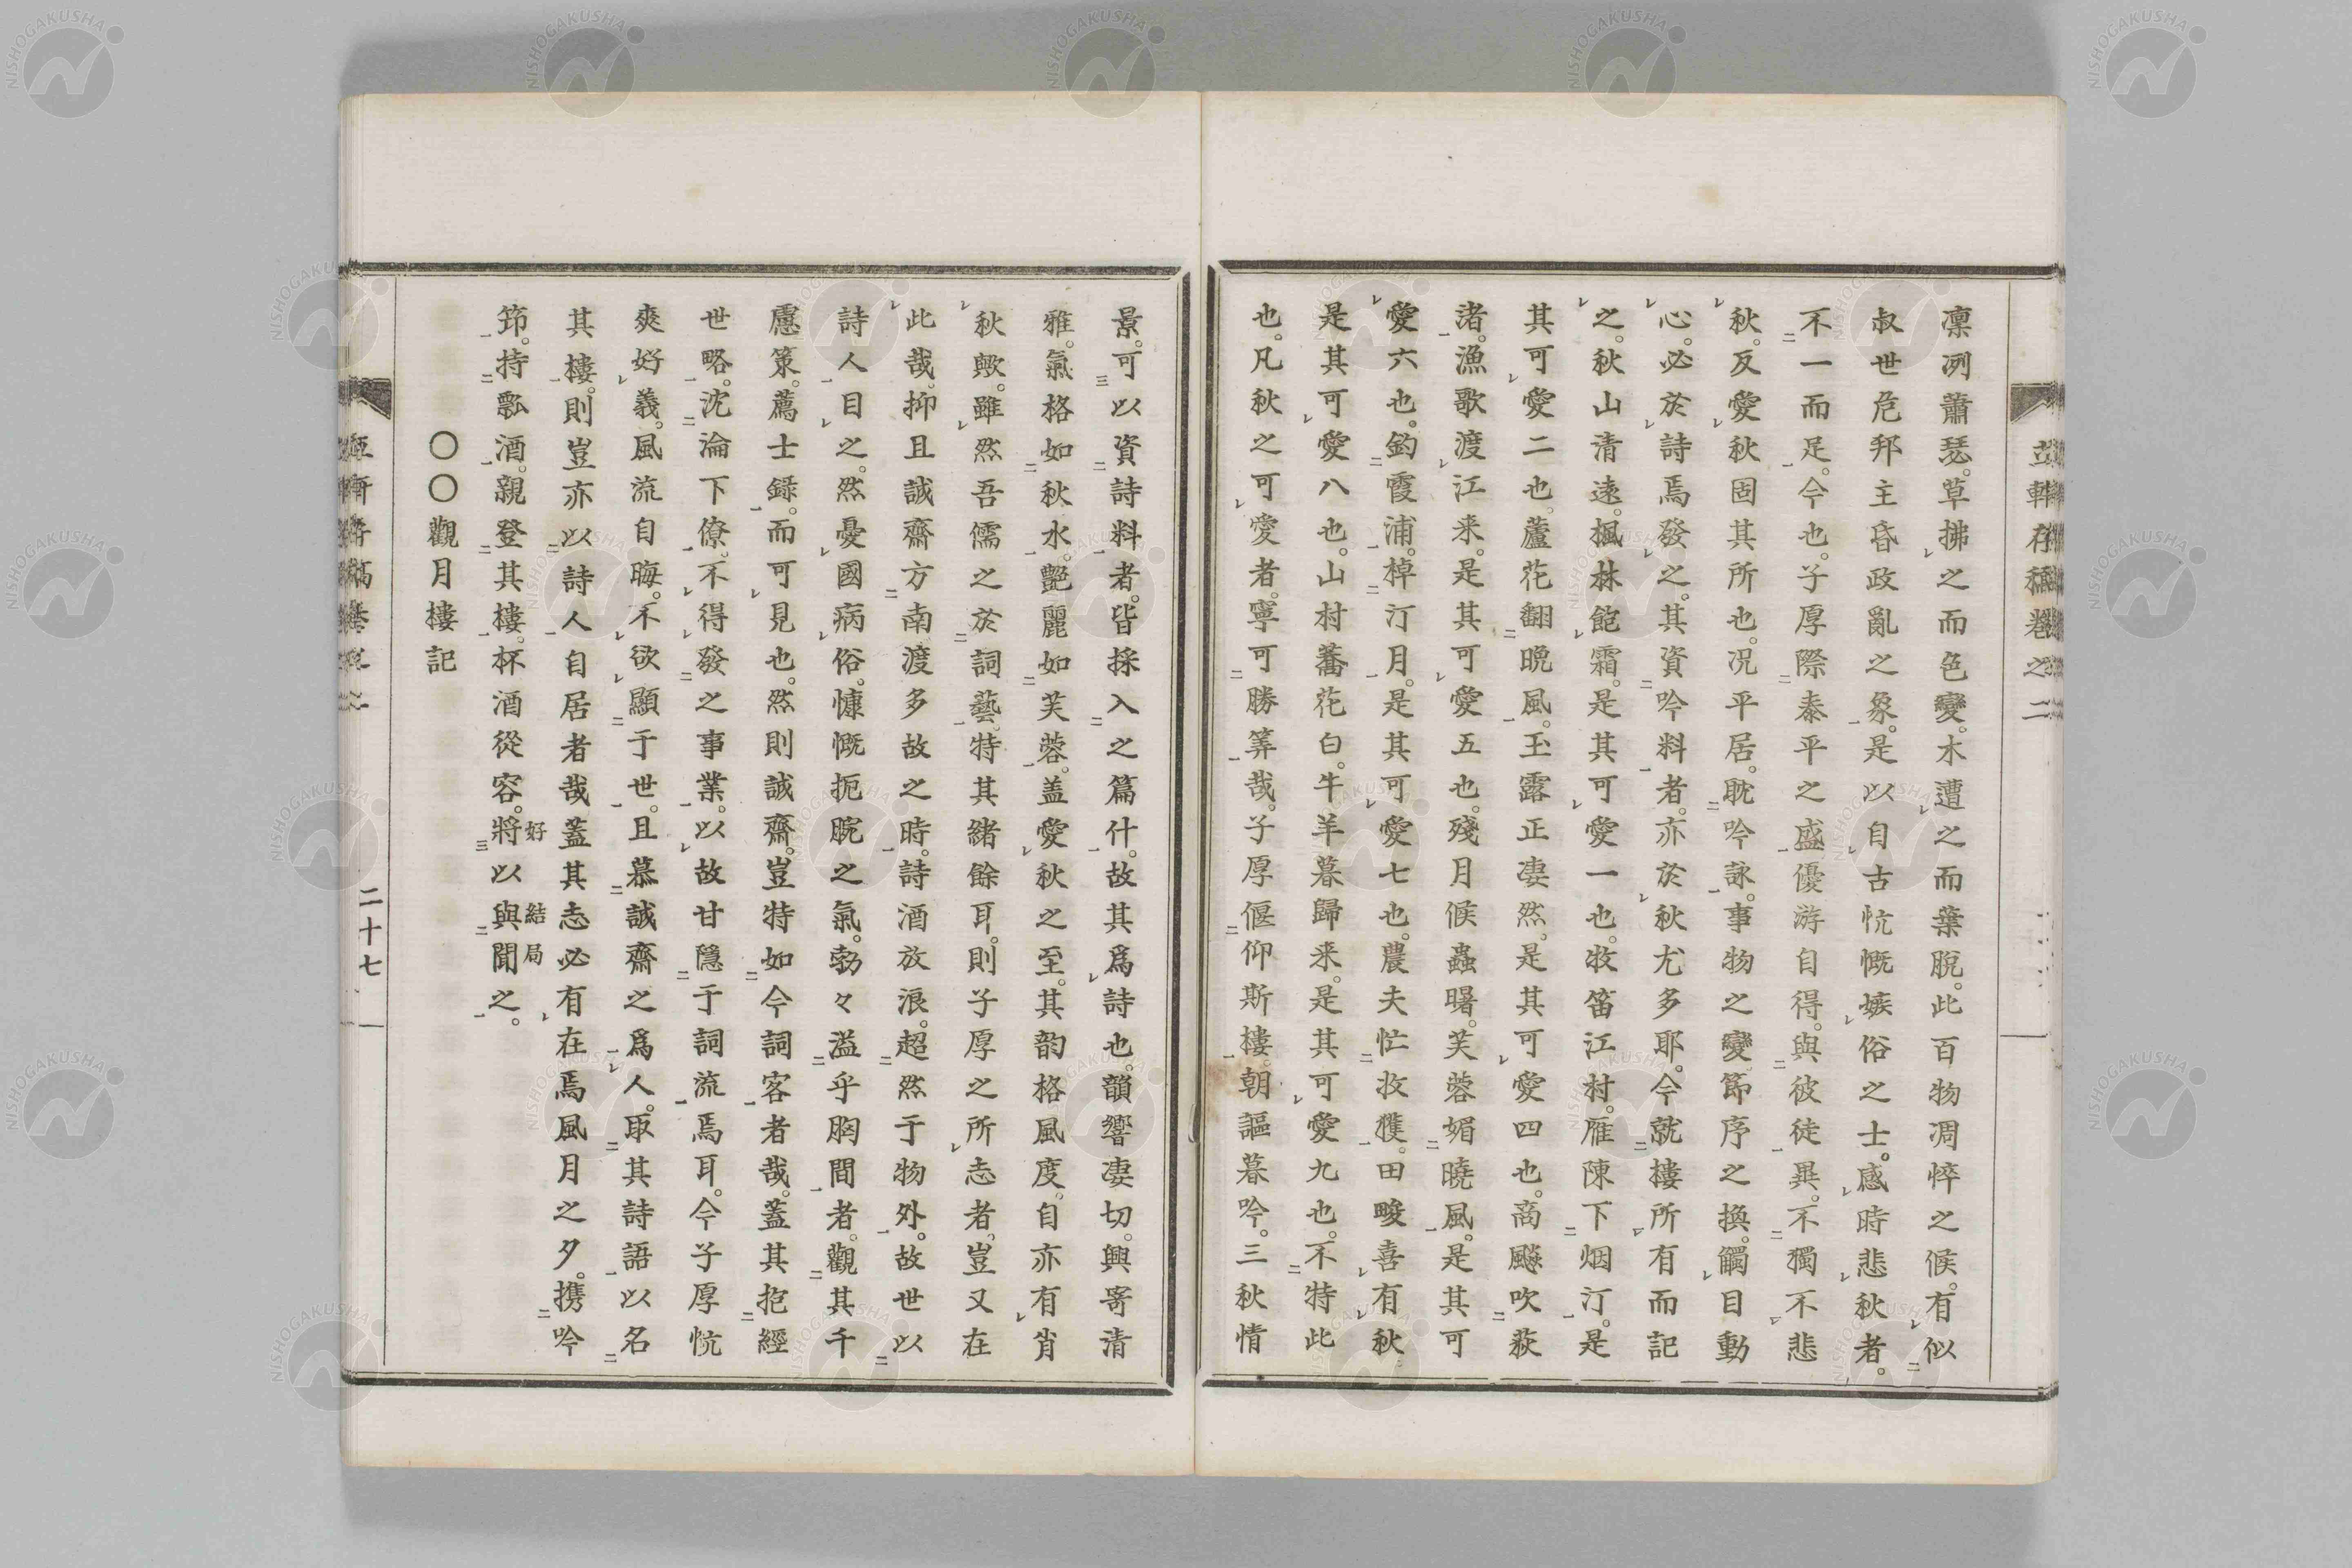 凛冽蕭瑟。草拂之而色變。木遭之而葉脫。此百物凋悴之候。有似
叔世危邦主昏政亂之象。是以自古忼慨嫉俗之士。感時悲秋者。
不一而足。今也。子厚際泰平之盛優游自得。與彼徒異。不獨不悲
秋。反愛秋固其所也。况平居。耽吟詠。事物之變節序之換。觸目動
心。必於詩焉發之。其資吟料者。亦於秋尤多耶。今就樓所有而記
之。秋山清遠。楓林飽霜。是其可愛一也。牧笛江村。雁陳下烟汀。是
其可愛二也。蘆花翻晚風。玉露正凄然。是其可愛四也。商飈吹荻
渚。漁歌渡江来。是其可愛五也。殘月候蟲曙。芙蓉媚曉風。是其可
愛六也。釣霞浦。棹汀月。是其可愛七也。農夫忙收穫。田畯喜有秋
是其可愛八也。山村蕎花白。牛羊暮歸来。是其可愛九也。不特此
也。凡秋之可愛者。寧可勝筭哉。子厚偃仰斯樓。朝謳暮吟。三秋情
景。可以資詩料者。皆採入之篇什。故其爲詩也。韻響凄切。興寄清
雅。氣格如秋水。艷麗如芙蓉。盖愛秋之至。其韵格風度。自亦有肖
秋歟。雖然吾儒之於詞藝。特其緒餘耳。則子厚之所志者。豈又在
此哉。抑且誠齋方南渡多故之時。詩酒放浪。超然于物外。故世以
詩人目之。然憂國病俗。慷慨扼腕之氣。勃々溢乎胸間者。觀其千
慮策。薦士錄。而可見也。然則誠齋。豈特如今詞客者哉。蓋其抱經
世略。沈淪下僚。不得發之事業。以故甘隱于詞流焉耳。今子厚忼
爽好義。風流自晦。不欲顯于世。且慕誠齋之爲人。取其詩語以名
其樓。則豈亦以詩人自居者哉蓋其志必有在焉風月之夕。携吟
筇。持瓢酒。親登其樓。杯酒從容。將以與聞之。
好結局
〇〇觀月樓記
存稿卷之二
二十七
NISHOGAKUSHA